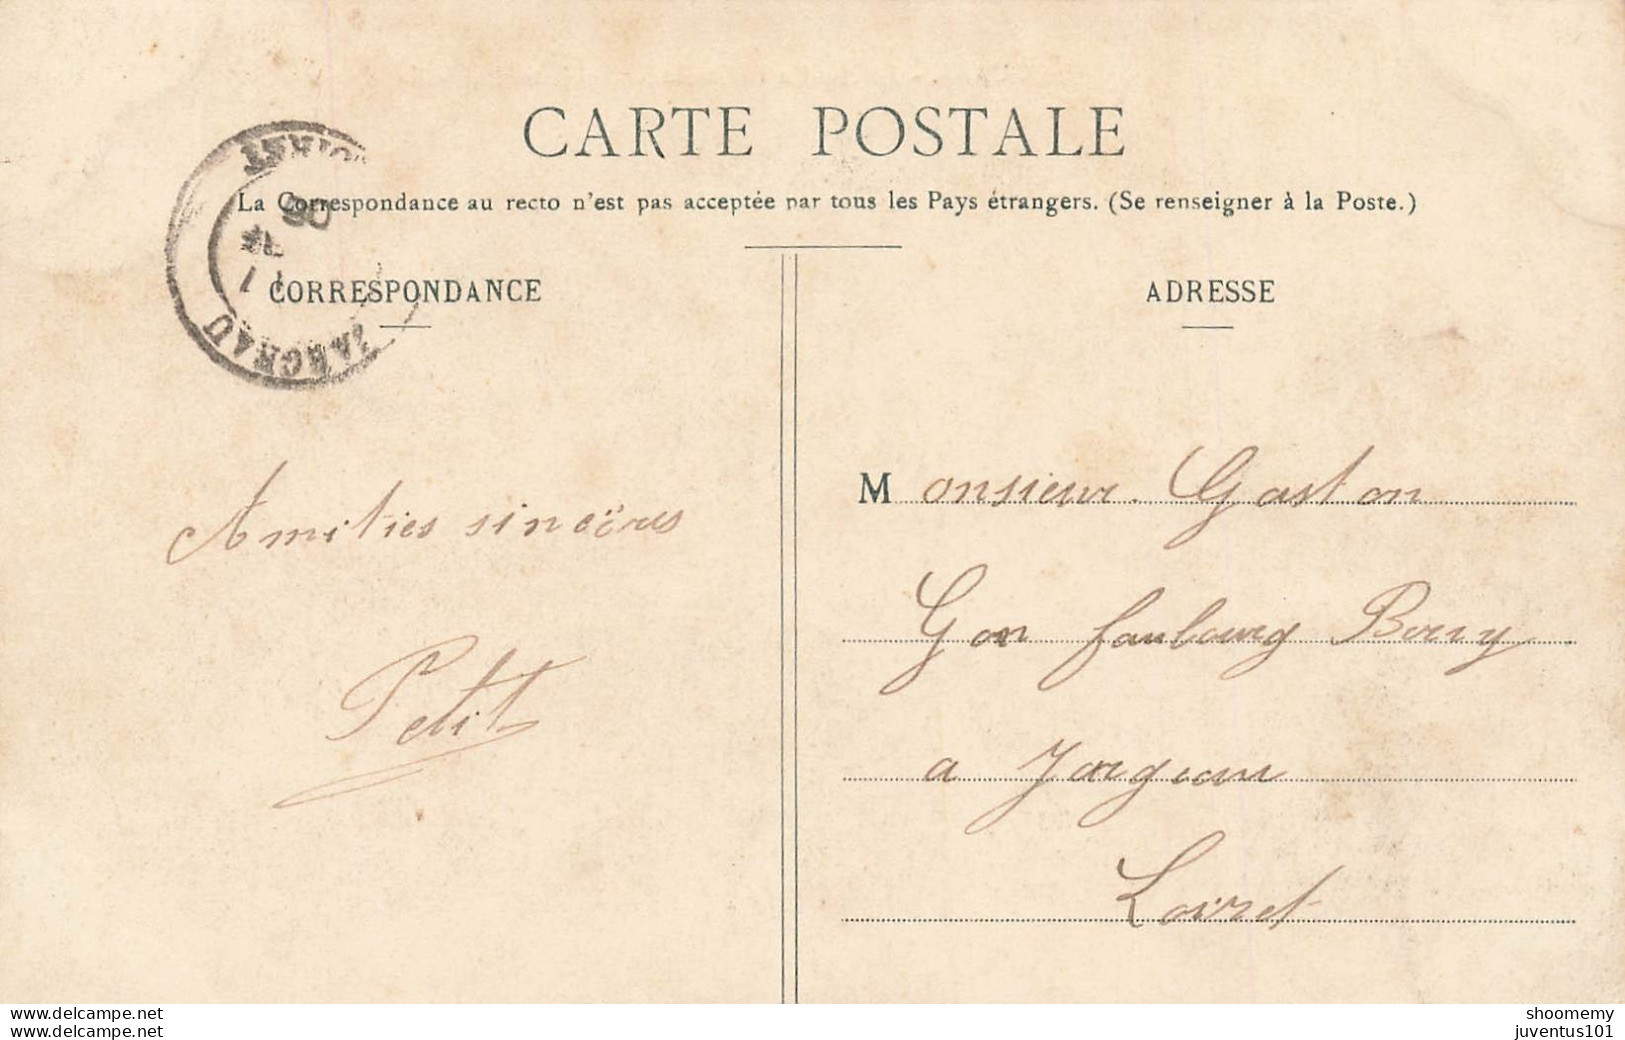 CARTE POSTALE
La Correspondance au recto n'est pas acceptée par tous les Pays étrangers. (Se renseigner à la Poste.)
CORRESPONDANCE
ADRESSE
JARGEAU
LOIRET
06
Amitiés sincères
Petit
Monsieur Gaston
Gon faubourg Berry
a Jargeau
Loiret
www.delcampe.net
www.delcampe.net
shoomemy
juventus101